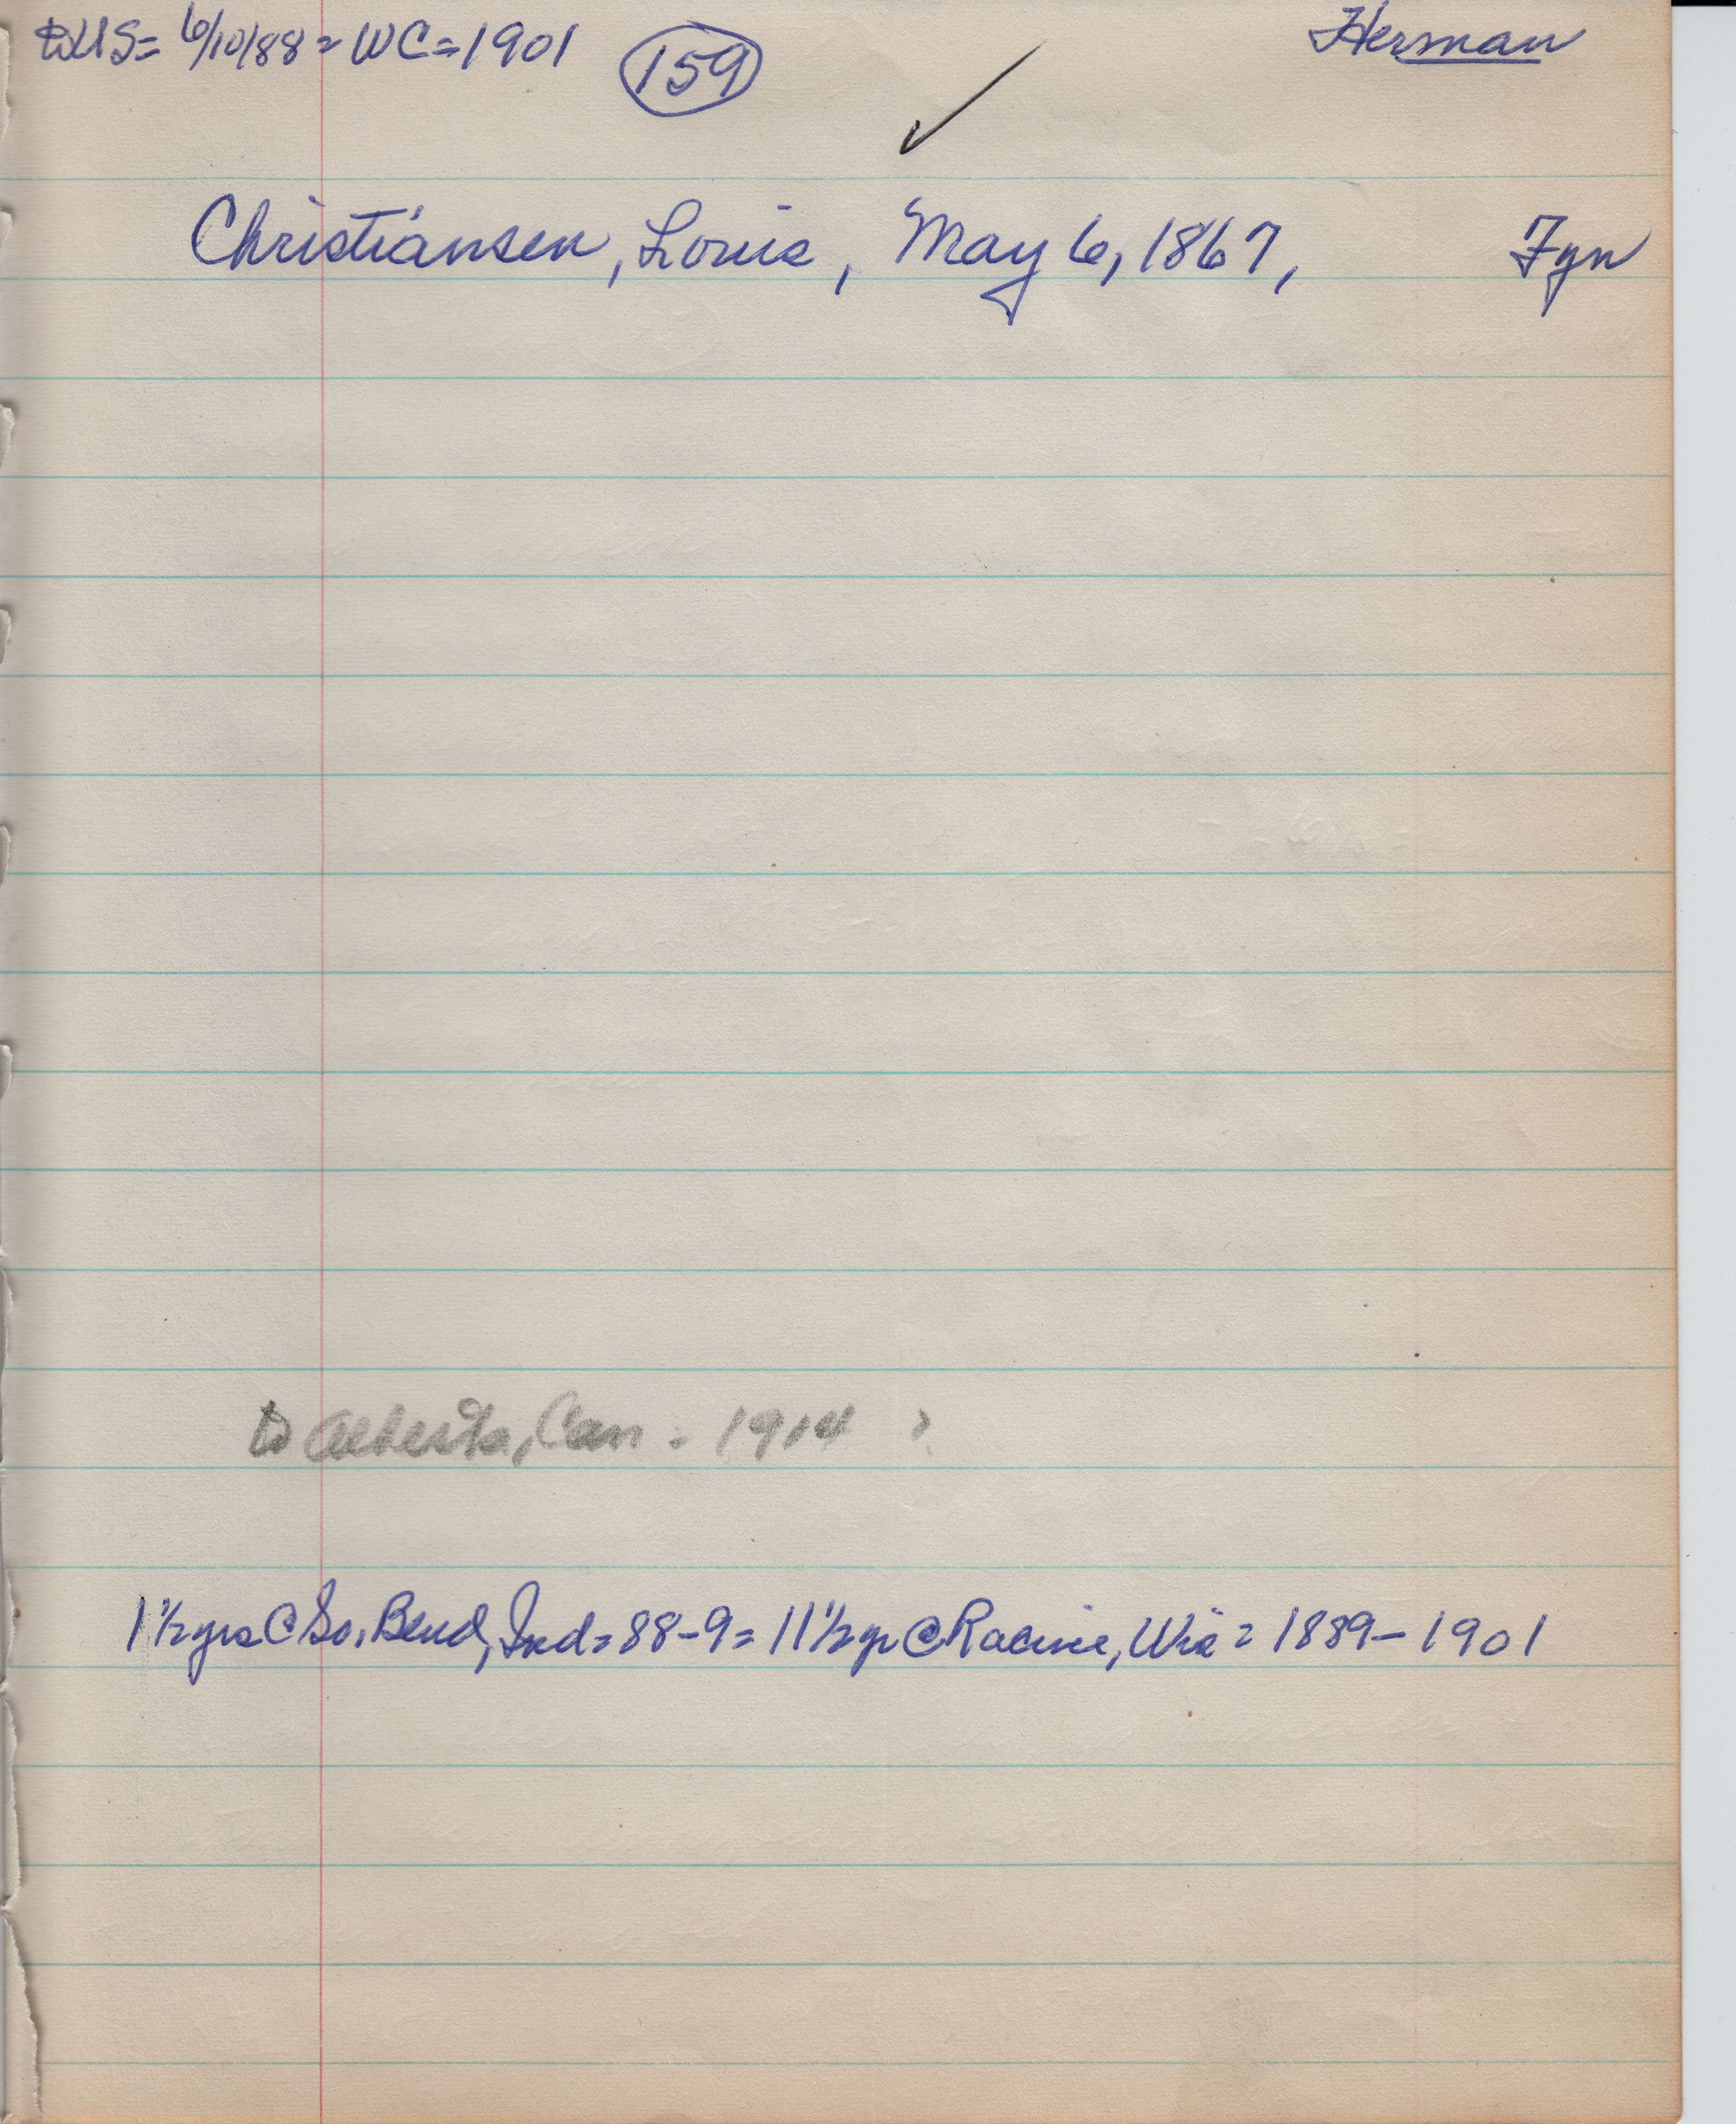 to US= 6/10/88= WC=1901 159 Herman
Christiansen, Louis, May 6, 1867, Fyn
to Alberta, Can. - 1914 ?
1 1/2 yrs @ So. Bend, Ind= 88-9= 11 1/2 yr @ Racine, Wis= 1889-1901